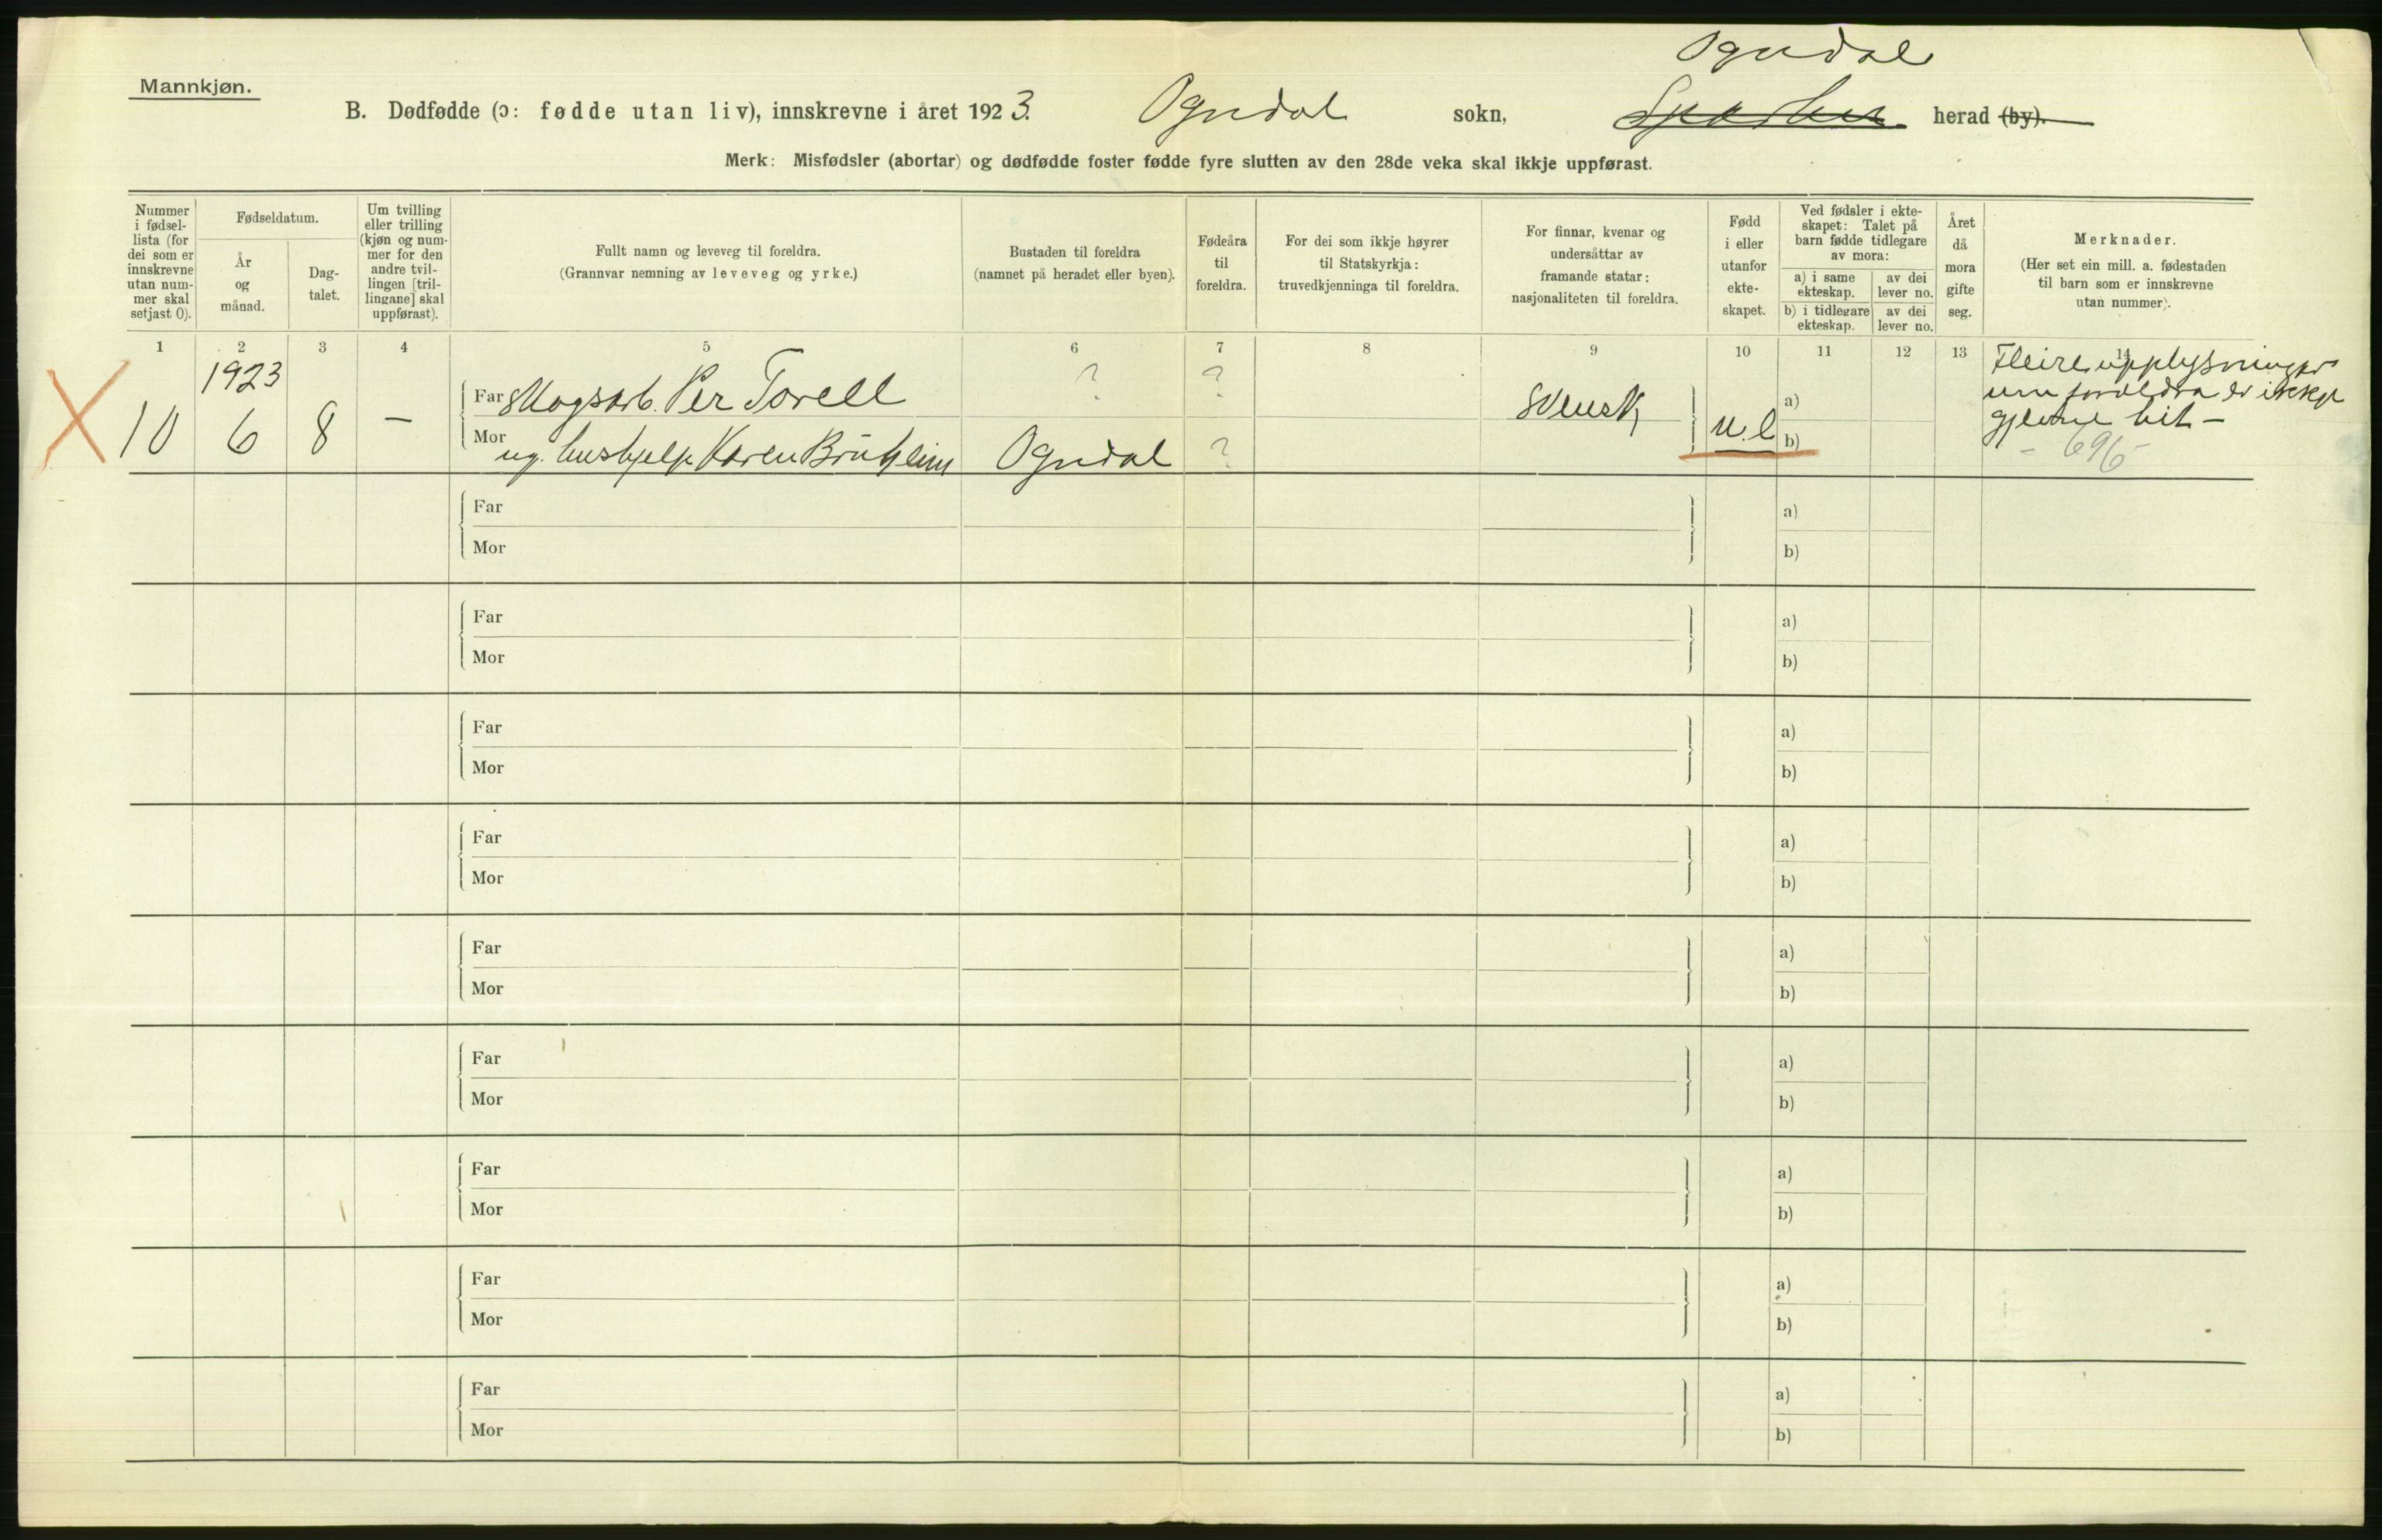 Ogndal
Mannkjøn.
B. Dødfødde (ɔ: fødde utan liv), innskrevne i året 1923. Ogndal sokn, herad (by).
Merk: Misfødsler (abortar) og dødfødde foster fødde fyre slutten av den 28de veka skal ikkje uppførast.
Nummer i fødsel-lista (for dei som er innskrevne utan num-mer skal setjast 0).
Fødseldatum.
År og månad.
Dag-talet.
Um tvilling eller trilling (kjøn og num-mer for den andre tvil-lingen [tril-lingane] skal uppførast).
Fullt namn og leveveg til foreldra.
(Grannvar nemning av leveveg og yrke.)
Bustaden til foreldra
(namnet på heradet eller byen).
Fødeåra til foreldra.
For dei som ikkje høyrer til Statskyrkja: truvedkjenninga til foreldra.
For finnar, kvenar og undersåttar av framande statar: nasjonaliteten til foreldra.
Fødd i eller utanfor ekte-skapet.
Ved fødsler i ekte-skapet: Talet på barn fødde tidlegare av mora:
a) i same ekteskap.
av dei lever no.
b) i tidlegare ekteskap.
av dei lever no.
Året då mora gifte seg.
Merknader.
(Her set ein mill. a. fødestaden til barn som er innskrevne utan nummer).
1 2 3 4 5 6 7 8 9 10 11 12 13 14
1923
Far Skogsarb. Per Torell ? ? Svensk a)
10 6 8 – u.e
Mor ug. hushjelp Karen Brùheim Ogndal ? b)
Fleire upplysningar
um foreldra er ikkje
gjevne hit –
- 696
Far a)
Mor b)
Far a)
Mor b)
Far a)
Mor b)
Far a)
Mor b)
Far a)
Mor b)
Far a)
Mor b)
Far a)
Mor b)
Far a)
Mor b)
Far a)
Mor b)